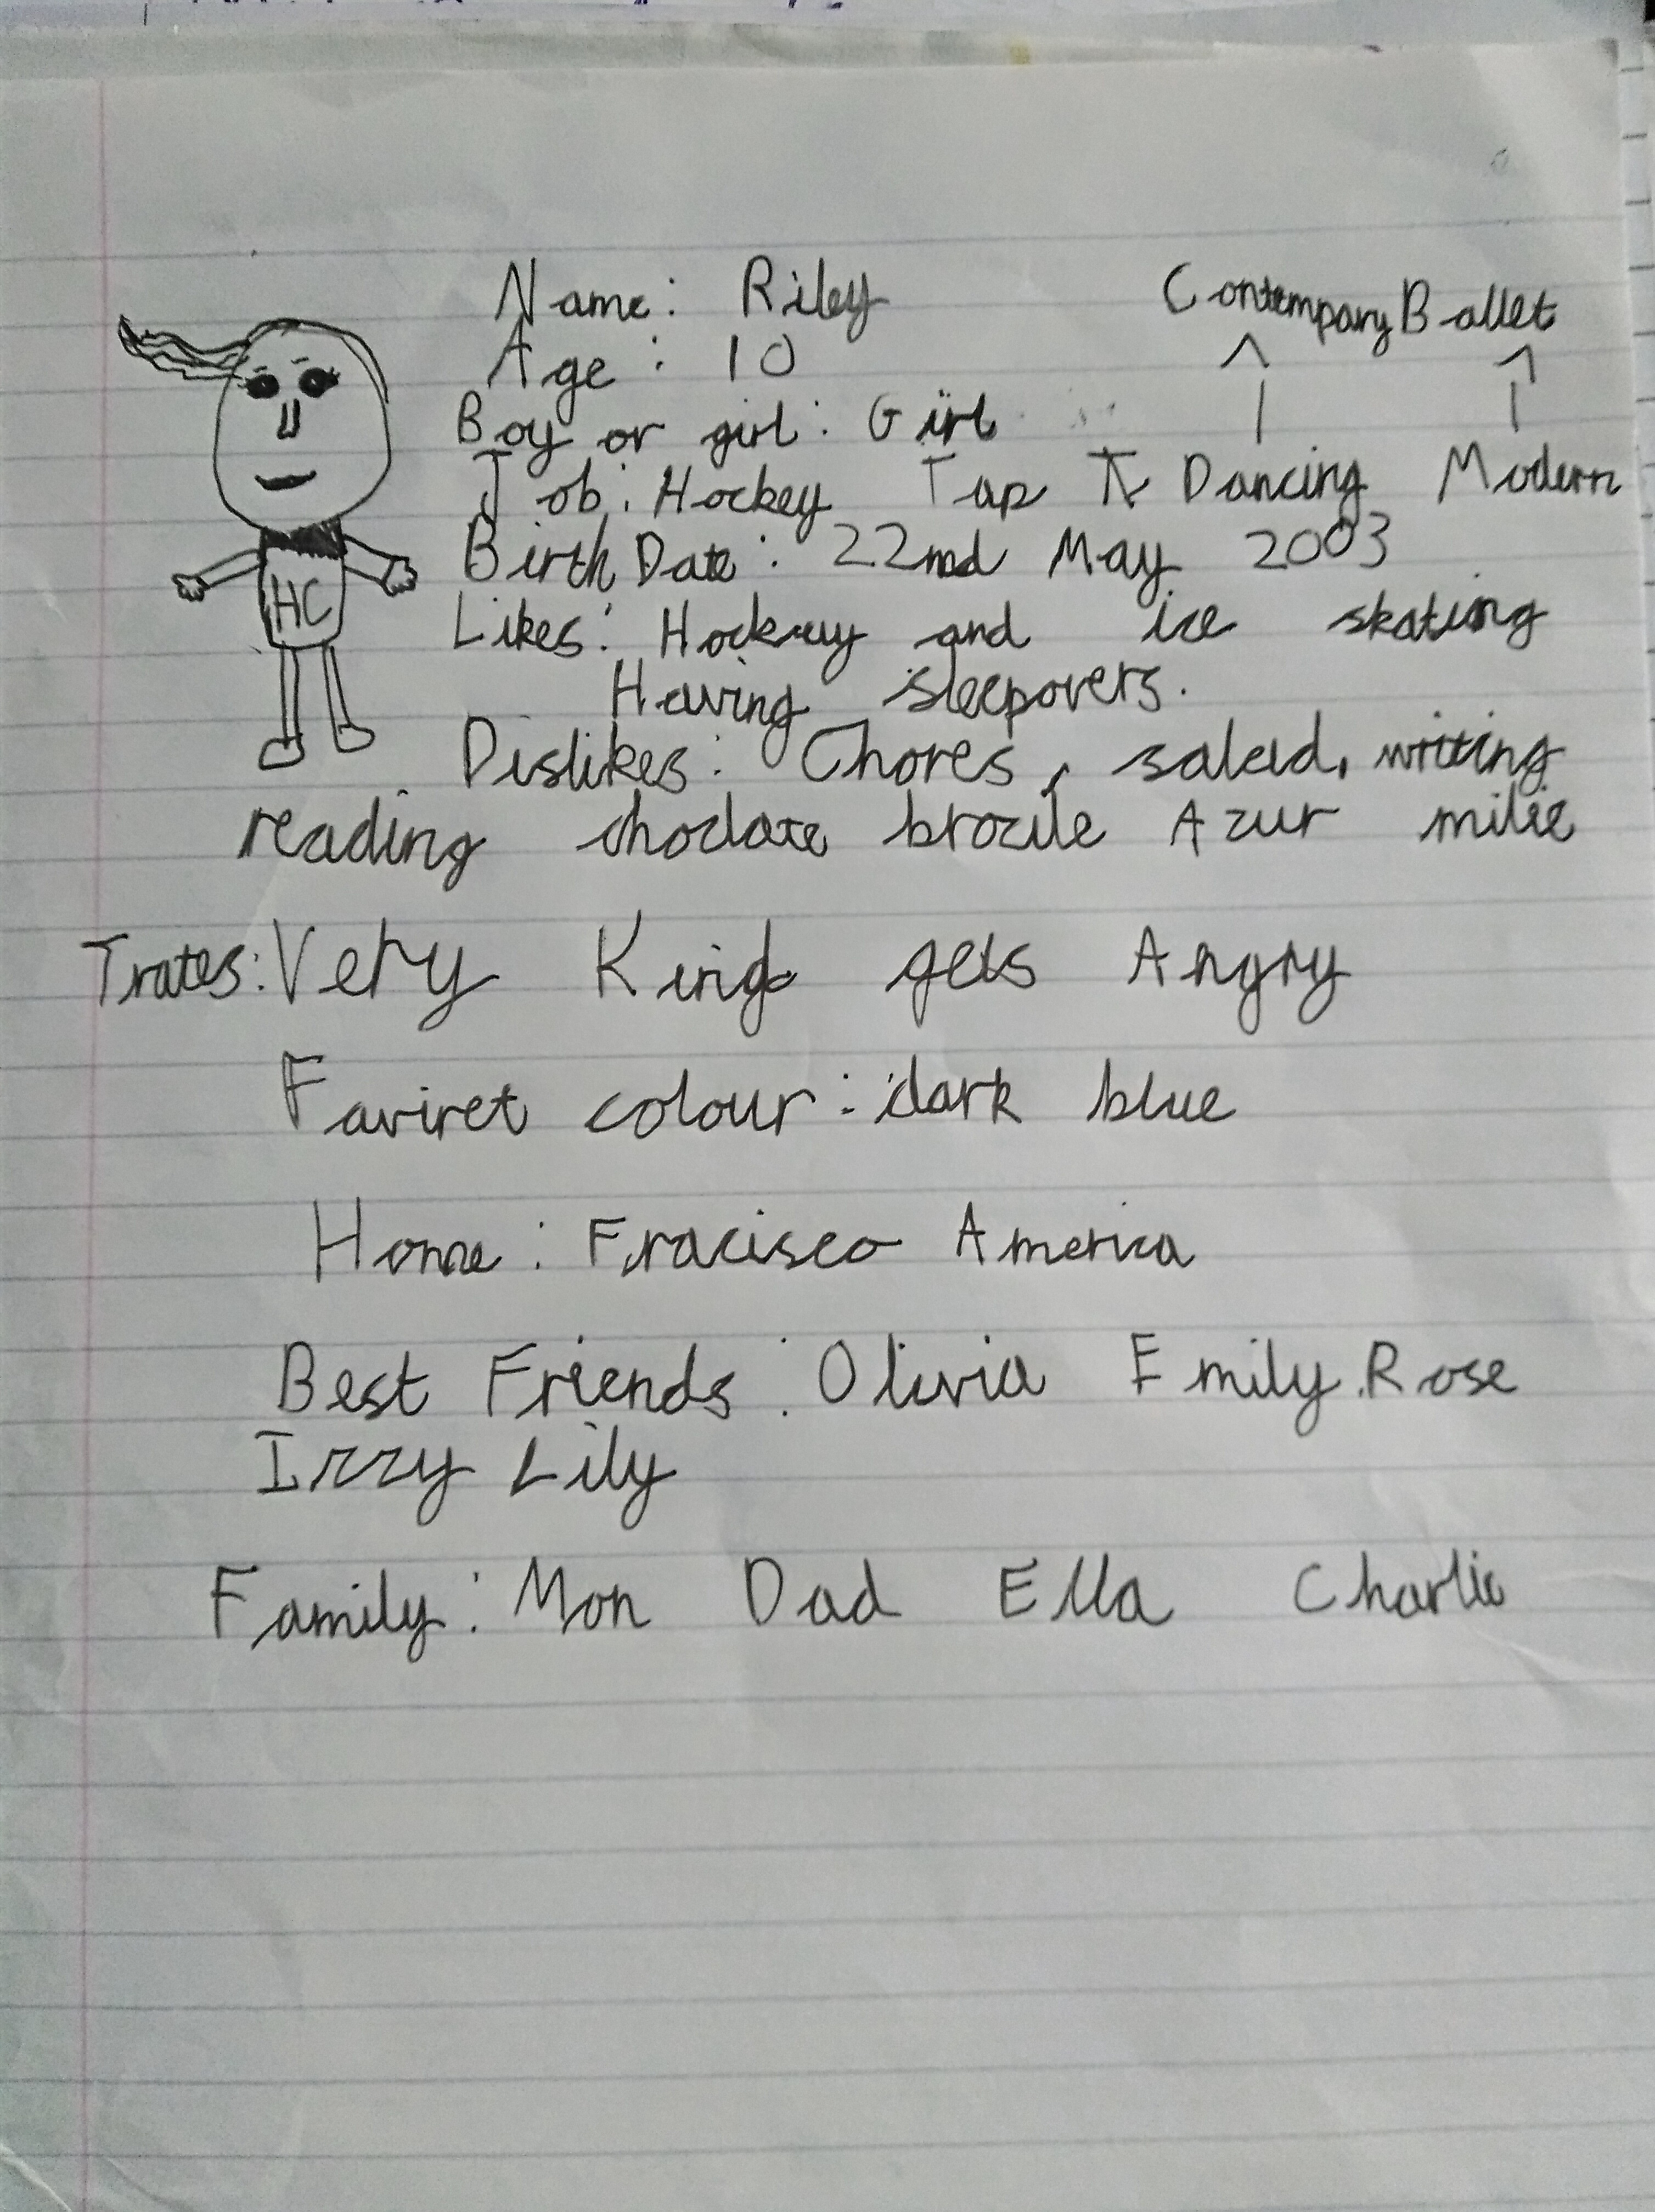 Name: Riley
Contempary Ballet
Age: 10
Boy or girl: Girl
Job: Hockey Tap Dancing Modern
Birth Date: 22nd May 2003
HC
Likes: Hockey and ice skating
Having sleepovers.
Dislikes: Chores, salad, writing
reading choclate Azur milie
Trates: Very Kind gets Angry
Faviret colour: dark blue
Home: Fracisco America
Best Friends: Olivia Emily.Rose
Izzy Lily
Family: Mon Dad Ella Charlie